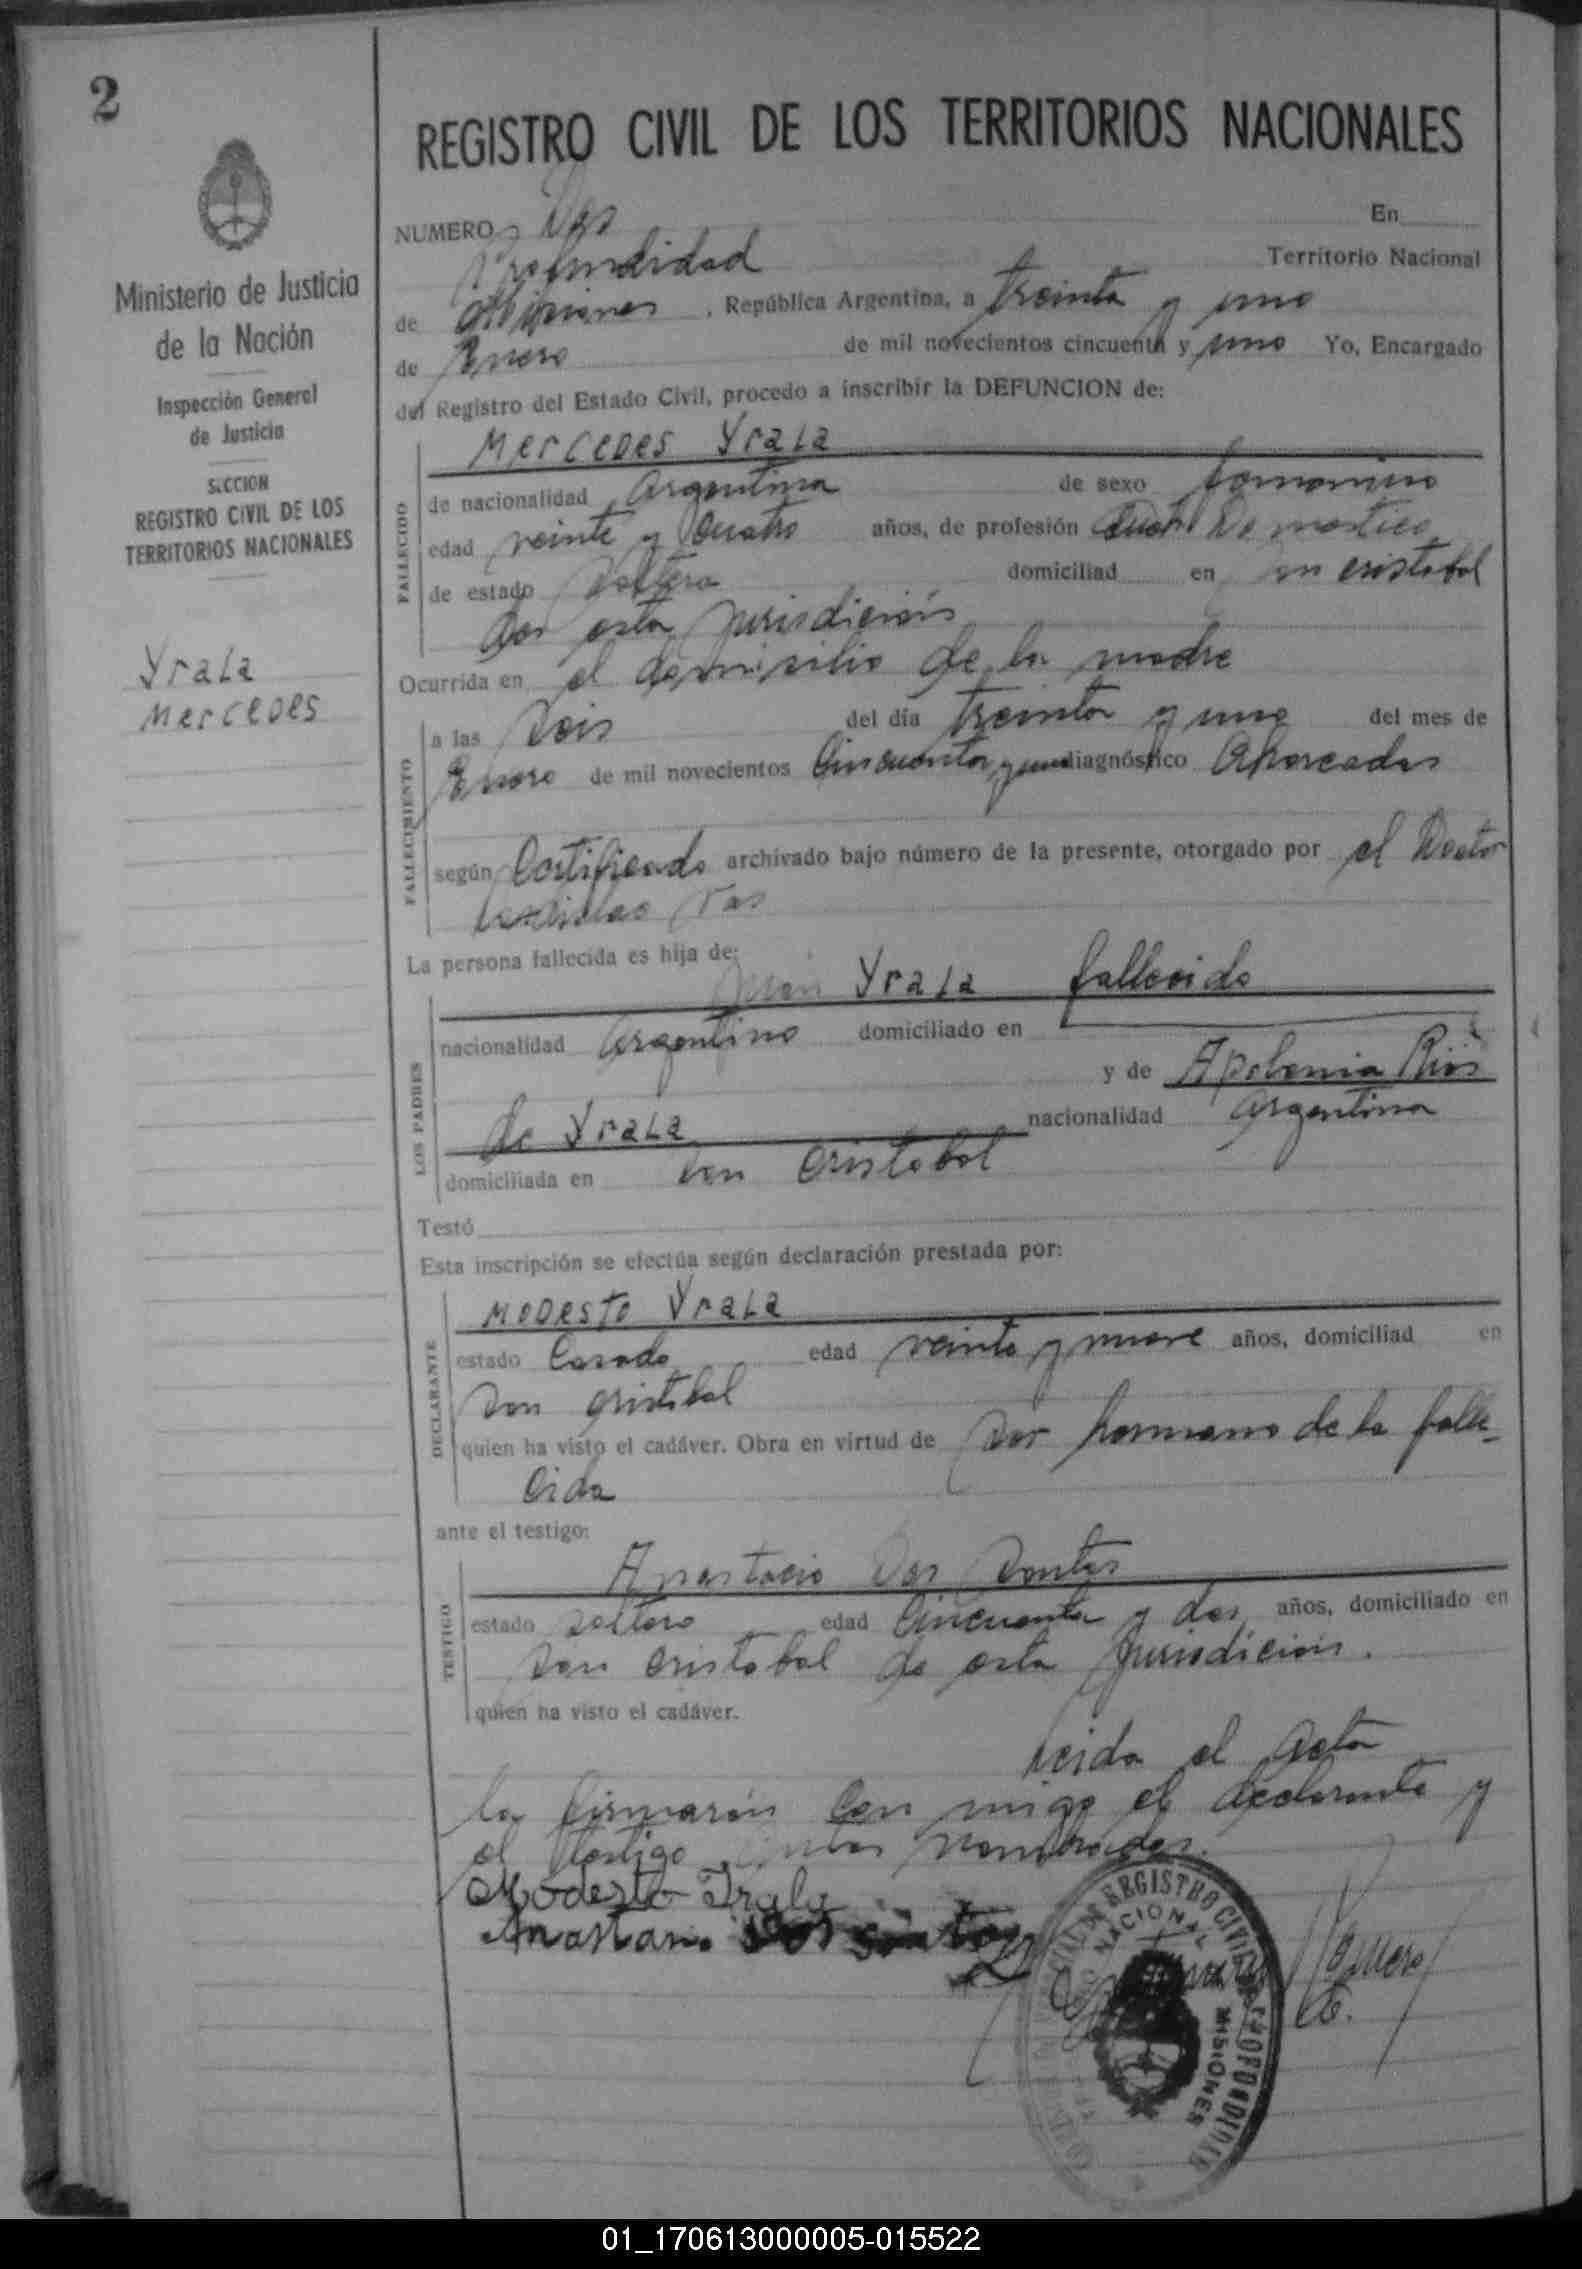 2
REGISTRO CIVIL DE LOS TERRITORIOS NACIONALES
Ministerio de Justicia
de la Nación
Inspección General
de Justicia
SECCION
REGISTRO CIVIL DE LOS
TERRITORIOS NACIONALES
Yrala
Mercedes
NUMERO Dos En
Profundidad Territorio Nacional
de Misiones , República Argentina, a treinta y uno
de Enero de mil novecientos cincuenta y uno Yo, Encargado
del Registro del Estado Civil, procedo a inscribir la DEFUNCION de:
FALLECIDO
Mercedes Yrala
de nacionalidad Argentina de sexo femenino
edad veinte y Cuatro años, de profesión Domestica
de estado Soltera domiciliad en cristobal
de esta Jurisdición
Ocurrida en el domisilio de la madre
FALLECIMIENTO
a las Seis del día treinta y uno del mes de
Enero de mil novecientos Cincuenta y uno diagnóstico Ahorcadas
según Certificado archivado bajo número de la presente, otorgado por el Doctor
Ladislao
La persona fallecida es hija de:
LOS PADRES
Juan Yrala fallecido
nacionalidad Argentino domiciliado en
y de Apolonia Ríos
de Yrala nacionalidad Argentina
domiciliada en San Cristobal
Testó
Esta inscripción se efectúa según declaración prestada por:
DECLARANTE
Modesto Yrala
estado Casado edad veinte y nueve años, domiciliad en
San Cristobal
quien ha visto el cadáver. Obra en virtud de Ser hermano de la falle-
Cida
ante el testigo:
TESTIGO
Anastacio Dos Santos
estado Soltero edad Cincuenta y dos años, domiciliado en
San Cristobal de esta Jurisdicion.
quien ha visto el cadáver.
Leida el Acta
la firmarán Con migo el declarante y
el Testigo antes nombrados.
Modesto Irala
Anastacio Dos Santos
Romero
REGISTRO CIVIL
NACIONAL
PROFUNDIDAD
MISIONES
01_170613000005-015522